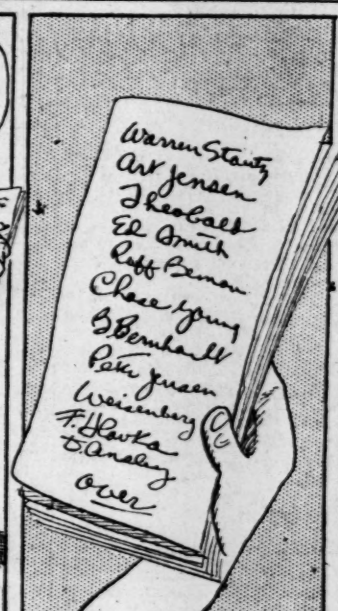 Warren Stantz
Art Jensen
Theobald
Ed Smith
Ruff Beman
Chase Young
B. Bernhardt
Peter Jensen
Weisenberg
F. Hlavka
D.
over